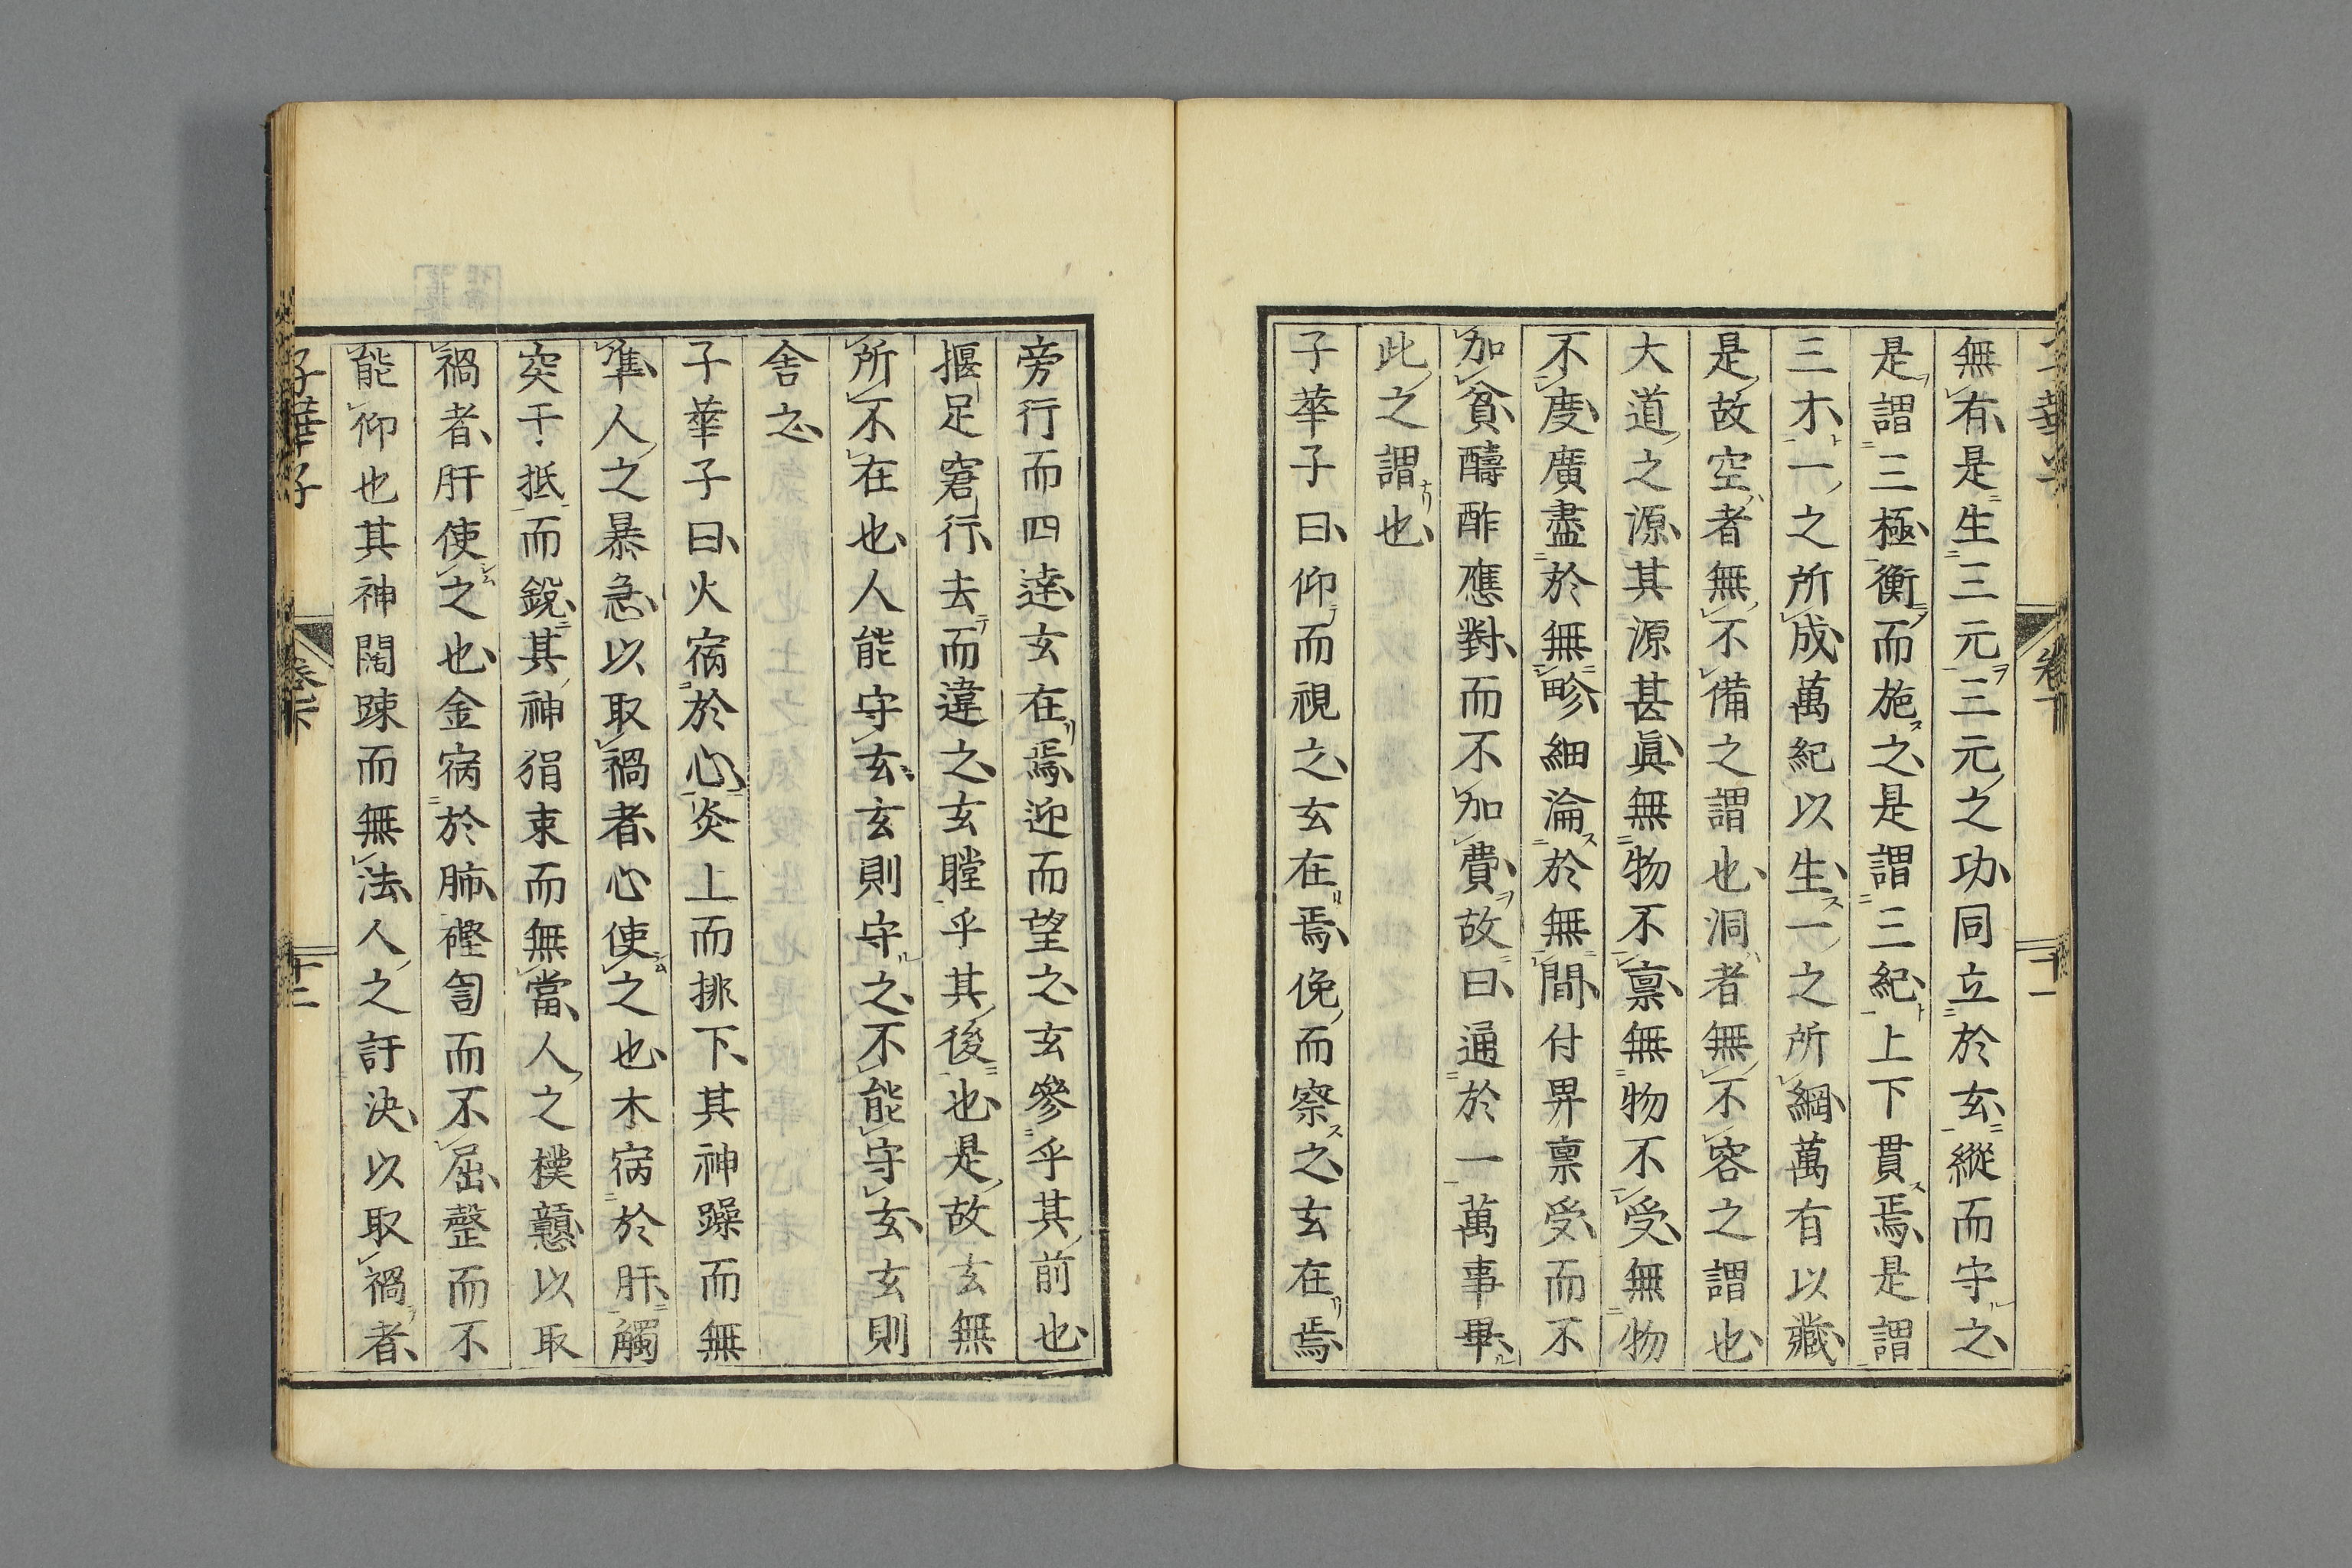 無有是生三元三元之功同立於玄縱而守之
是謂三極衡而施之是謂三紀上下貫焉是謂
三才一之所成萬紀以生一之所綱萬有以藏
是故空者無不備之謂也洞者無不容之謂也
大道之源其源甚眞無物不禀無物不受無物
不度廣盡於無畛細淪於無間付畀禀受而不
加貧醻酢應對而不加費故曰通於一萬事畢
此之謂也
子華子曰仰而視之玄在焉俛而察之玄在焉
旁行而四逹玄在焉迎而望之玄參乎其前也
揠足窘行去而違之玄瞠乎其後也是故玄無
所不在也人能守玄玄則守之不能守玄玄則
舍之
子華子曰火宿於心炎上而排下其神躁而無
準人之暴急以取禍者心使之也木宿於肝觸
突干抵而鋭其神狷束而無當人之樸戇以取
禍者肝使之也金宿於肺磬訇而不屈罄而不
能仰也其神闊踈而無法人之訐決以取禍者
子華子 卷下 十二